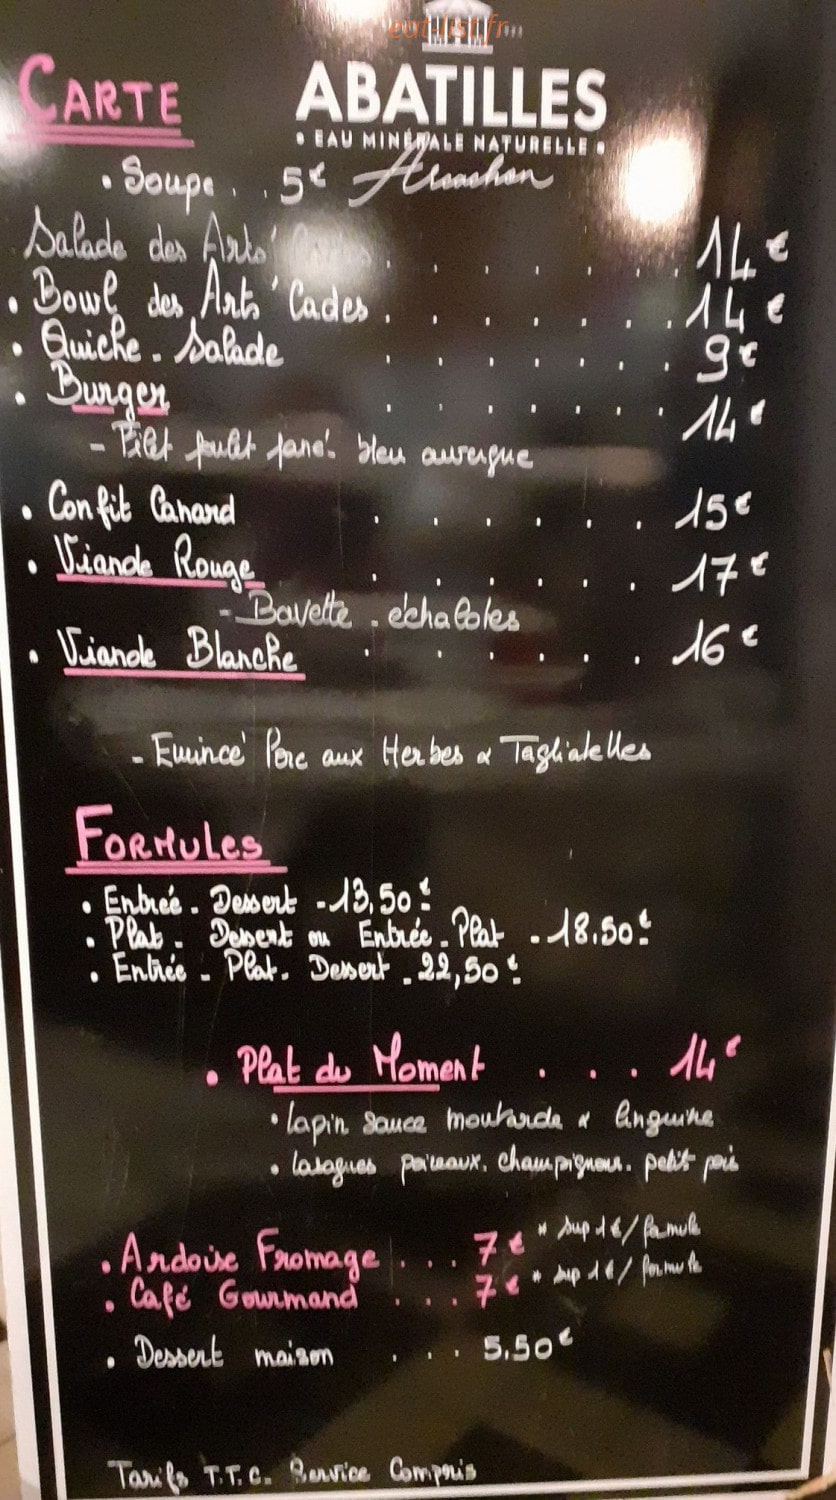 eat-list.fr
CARTE
ABATILLES
• EAU MINÉRALE NATURELLE •
Arcachon
• Soupe . . 5€
Salade des Arts' Cades . . . . . . . 14€
• Bowl des Arts'Cades . . . . . . . 14€
• Quiche - Salade . . . . . . 9€
• Burger . . . . . . 14€
- Filet poulet pané - bleu auvergne
• Confit Canard . . . . . . 15€
• Viande Rouge . . . . . . 17€
- Bavette - échalotes
• Viande Blanche . . . . . . 16€
- Emincé Porc aux Herbes & Tagliatelles
FORMULES
• Entrée - Dessert - 13,50€
• Plat - Dessert ou Entrée - Plat - 18.50€
• Entrée - Plat - Dessert - 22,50€
• Plat du Moment . . . 14€
• lapin sauce moutarde & linguine
• lasagnes poireaux, champignons, petit pois
• Ardoise Fromage . . . 7€ * sup 1€/formule
• Café Gourmand . . . 7€ * sup 1€/formule
• Dessert maison . . . 5.50€
Tarifs T.T.C. Service Compris